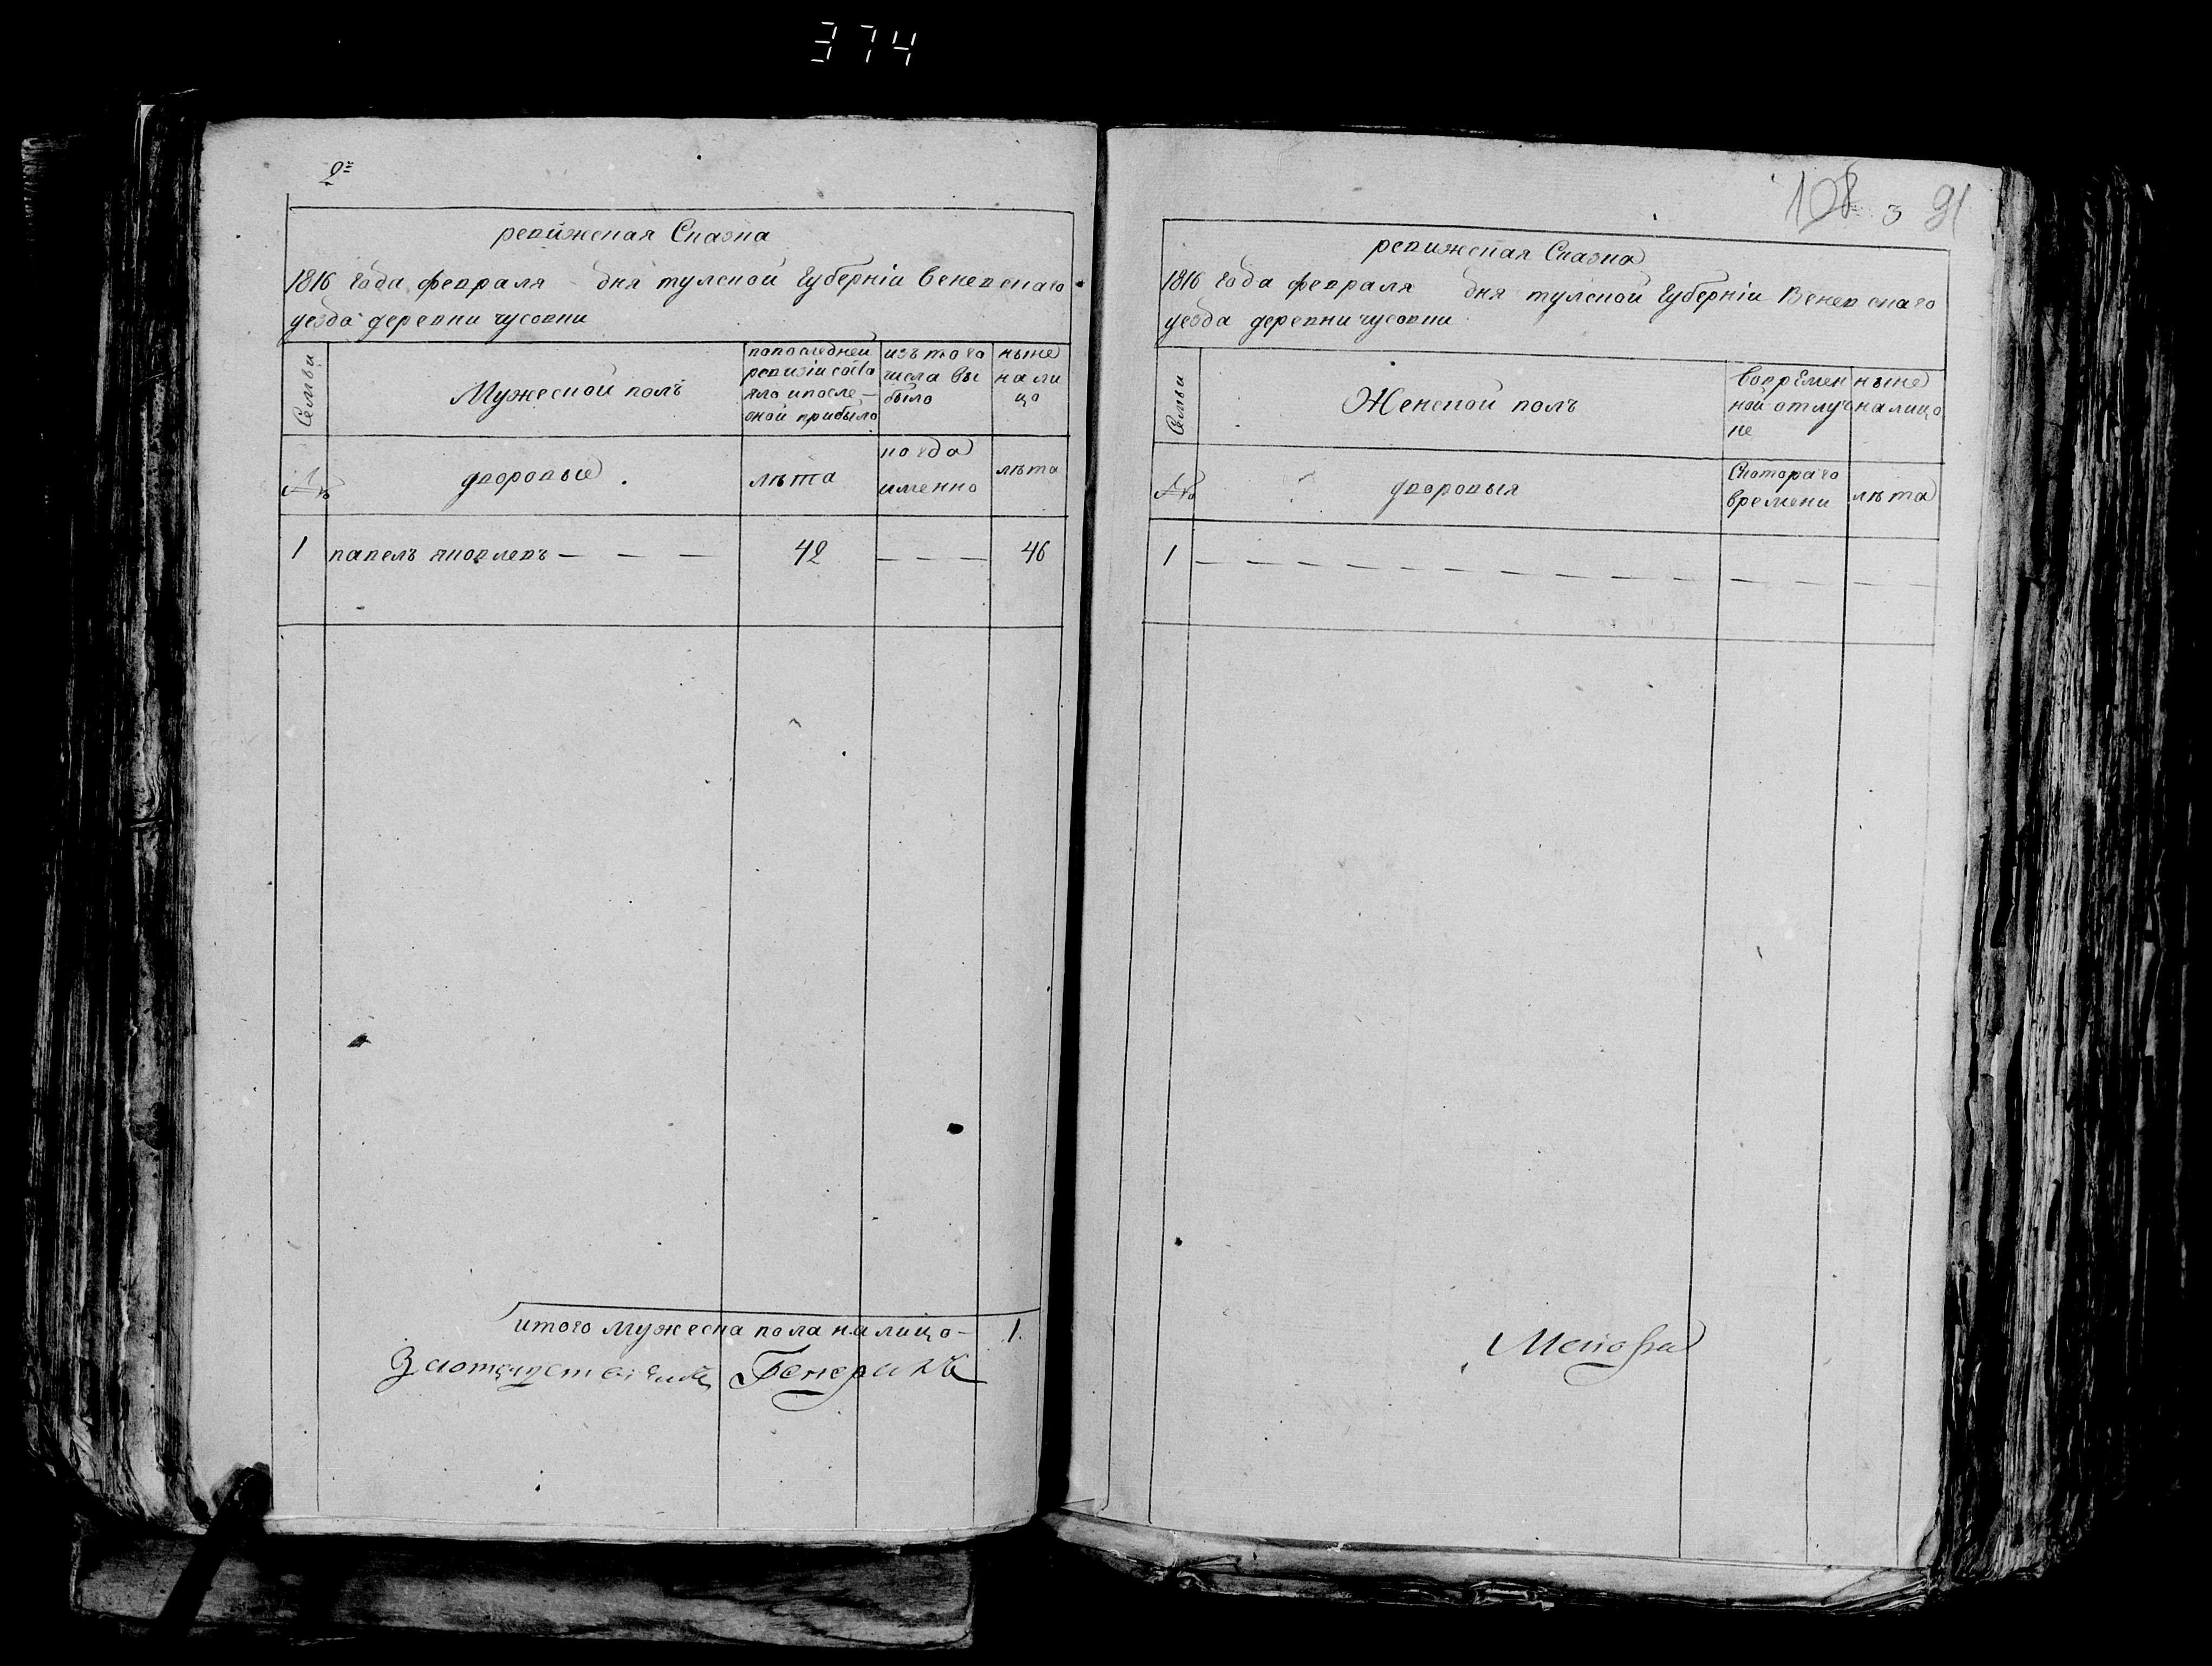 374
2е
ревижская Сказка
1816 года февраля дня тулской губерніи веневскаго
уезда деревни чусовки
Семьи
Мужеской полъ
попоследней ревизіи состояло ипосле оной прибыло
изъ того числа выбыло
ныне налицо
№
дворовые
лѣта
когда именно
лѣта
1 павелъ яковлевъ — — — 42 — — — 46
итого мужеска пола налицо — 1.
108 3 91
ревижская Сказка
1816 года февраля дня тулской губерніи Веневскаго
уезда деревни чусовки
Семьи
Женской полъ
вовременной отлучке
ныне налицо
№
дворовыя
Скотораго времени
лѣта
1 — — — — — — — — — — — — — — —